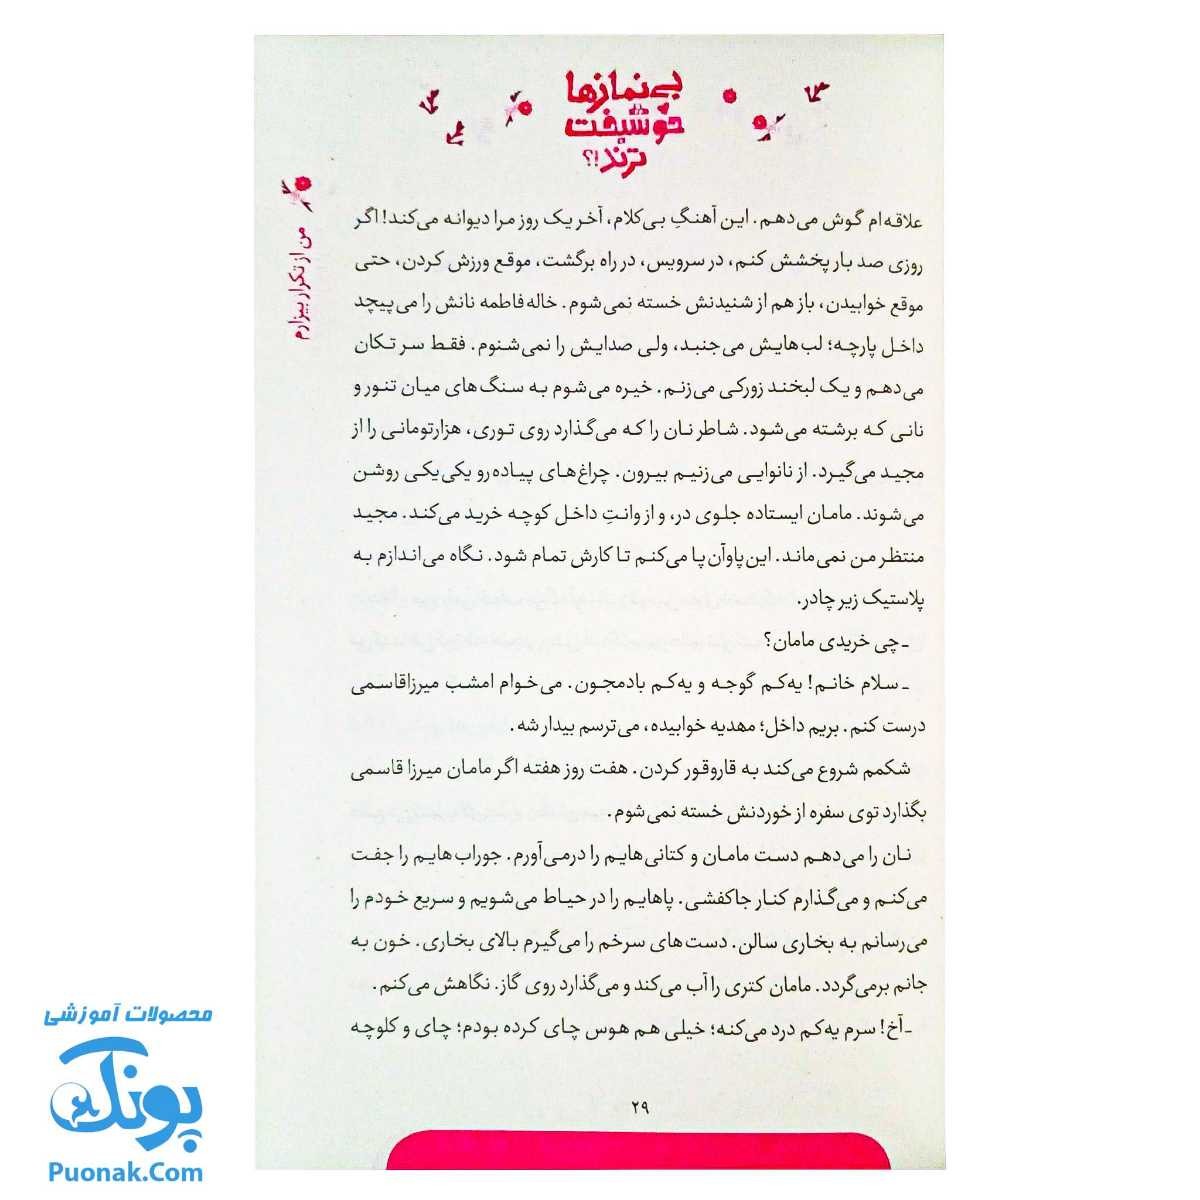 بی‌نمازها
خوشبخت
ترند!؟
من از تکرار بیزارم
علاقه‌ام گوش می‌دهم. این آهنگِ بی‌کلام، آخر یک روز مرا دیوانه می‌کند! اگر
روزی صد بار پخشش کنم، در سرویس، در راه برگشت، موقع ورزش کردن، حتی
موقع خوابیدن، باز هم از شنیدنش خسته نمی‌شوم. خاله فاطمه نانش را می‌پیچد
داخل پارچه؛ لب‌هایش می‌جنبد، ولی صدایش را نمی‌شنوم. فقط سر تکان
می‌دهم و یک لبخند زورکی می‌زنم. خیره می‌شوم به سنگ‌های میان تنور و
نانی که برشته می‌شود. شاطر نان را که می‌گذارد روی توری، هزارتومانی را از
مجید می‌گیرد. از نانوایی می‌زنیم بیرون. چراغ‌های پیاده‌رو یکی‌یکی روشن
می‌شوند. مامان ایستاده جلوی در، و از وانتِ داخل کوچه خرید می‌کند. مجید
منتظر من نمی‌ماند. این‌پاوآن‌پا می‌کنم تا کارش تمام شود. نگاه می‌اندازم به
پلاستیک زیر چادر.
ـ چی خریدی مامان؟
ـ سلام خانم! یه‌کم گوجه و یه‌کم بادمجون. می‌خوام امشب میرزاقاسمی
درست کنم. بریم داخل؛ مهدیه خوابیده، می‌ترسم بیدار شه.
شکمم شروع می‌کند به قاروقور کردن. هفت روز هفته اگر مامان میرزا قاسمی
بگذارد توی سفره از خوردنش خسته نمی‌شوم.
نان را می‌دهم دست مامان و کتانی‌هایم را درمی‌آورم. جوراب‌هایم را جفت
می‌کنم و می‌گذارم کنار جاکفشی. پاهایم را در حیاط می‌شویم و سریع خودم را
می‌رسانم به بخاری سالن. دست‌های سرخم را می‌گیرم بالای بخاری. خون به
جانم برمی‌گردد. مامان کتری را آب می‌کند و می‌گذارد روی گاز. نگاهش می‌کنم.
ـ آخ! سرم یه‌کم درد می‌کنه؛ خیلی هم هوس چای کرده بودم؛ چای و کلوچه
۲۹
محصولات آموزشی
پونک
Puonak.Com